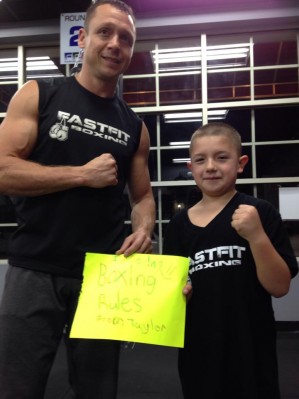 ROUND
2
FASTFIT
BOXING
FASTFIT
BOXING
Boxing
Rules
Taylor